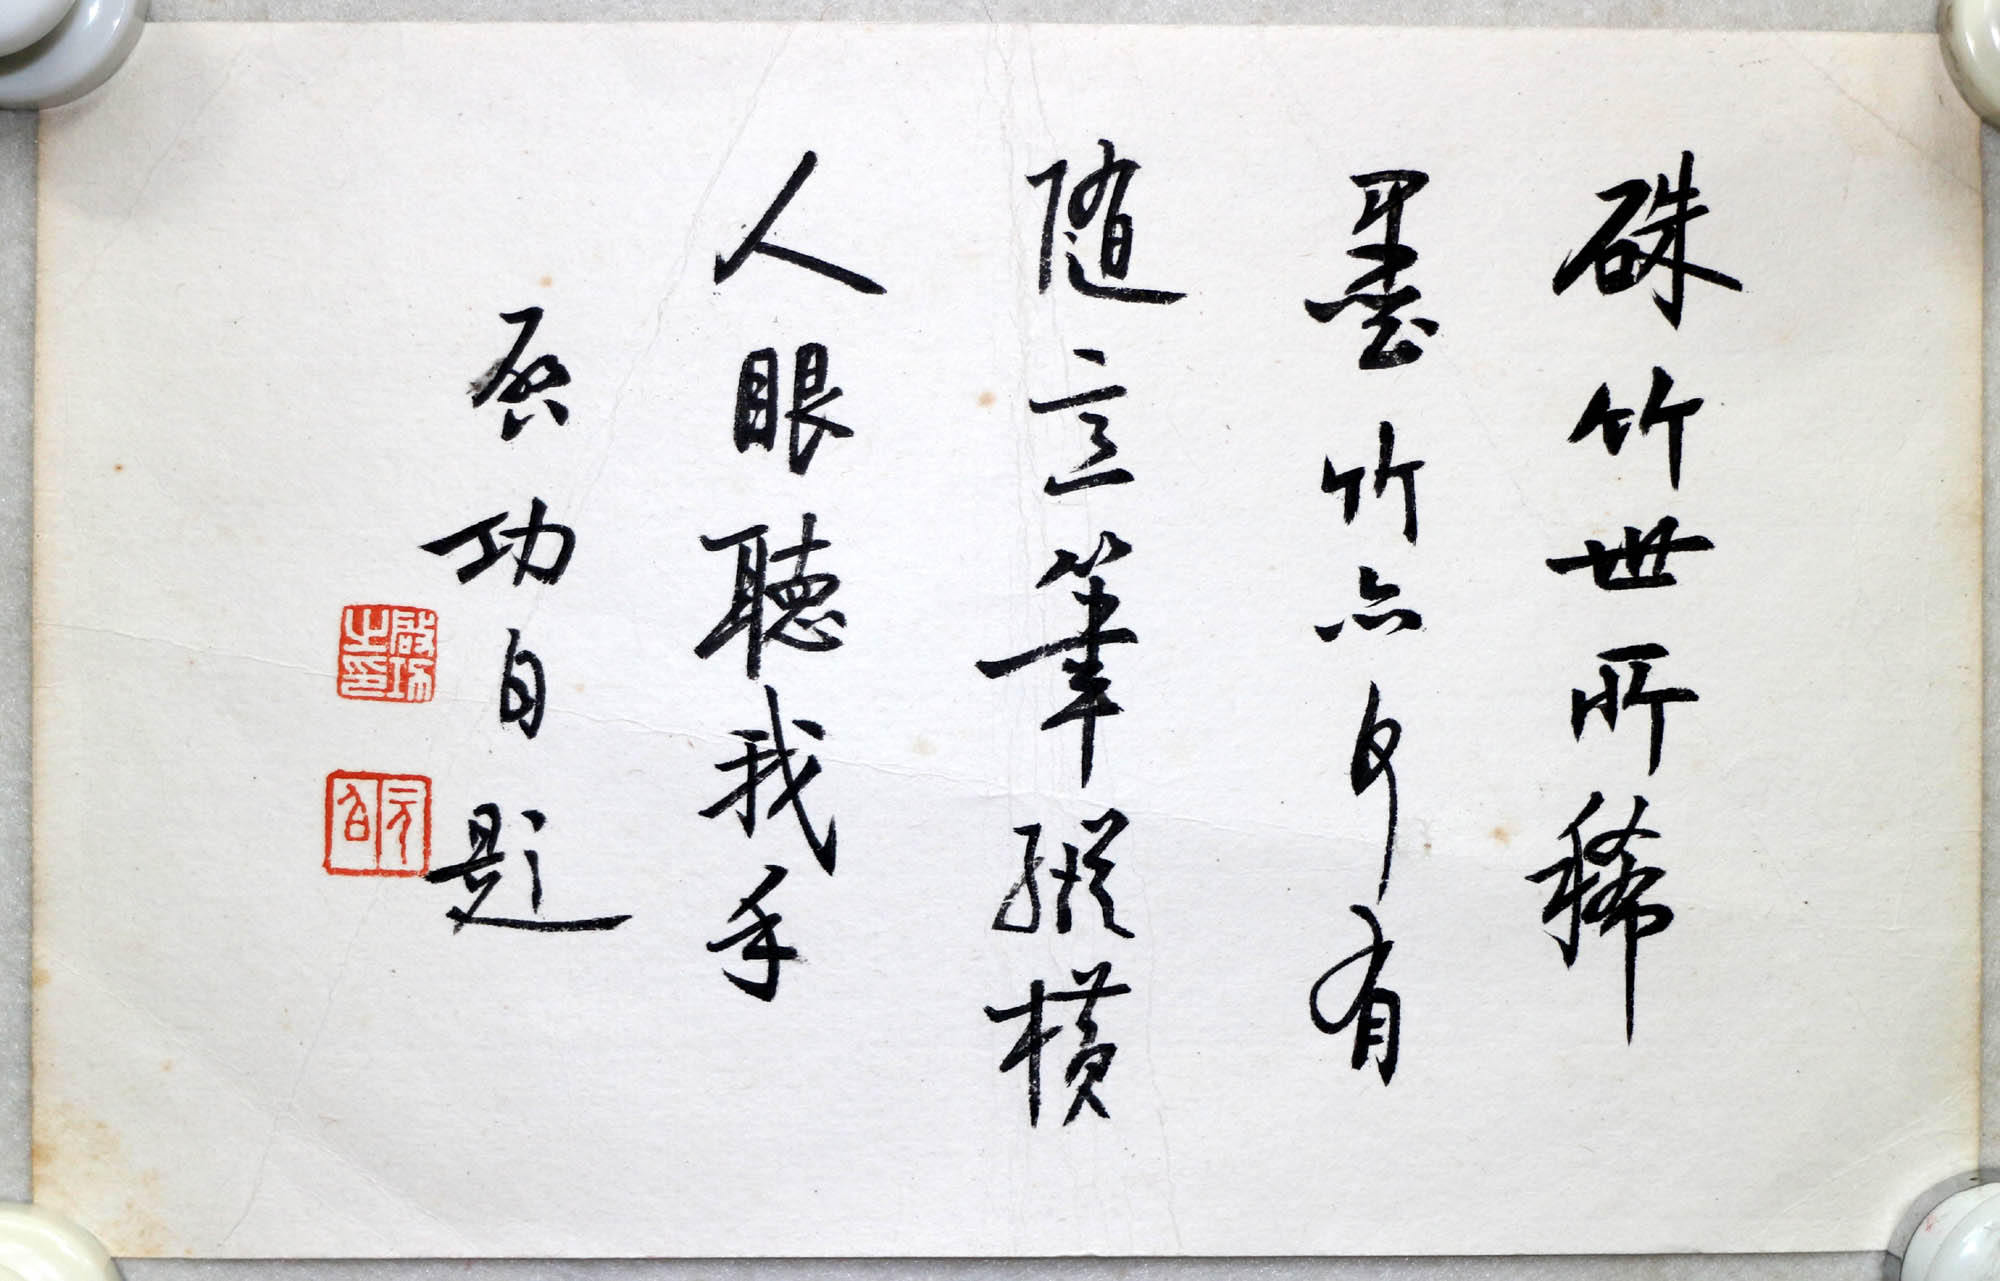 硃竹世所稀
墨竹亦何有
随意筆縱橫
人眼聽我手
启功自題
啟功之印
元白